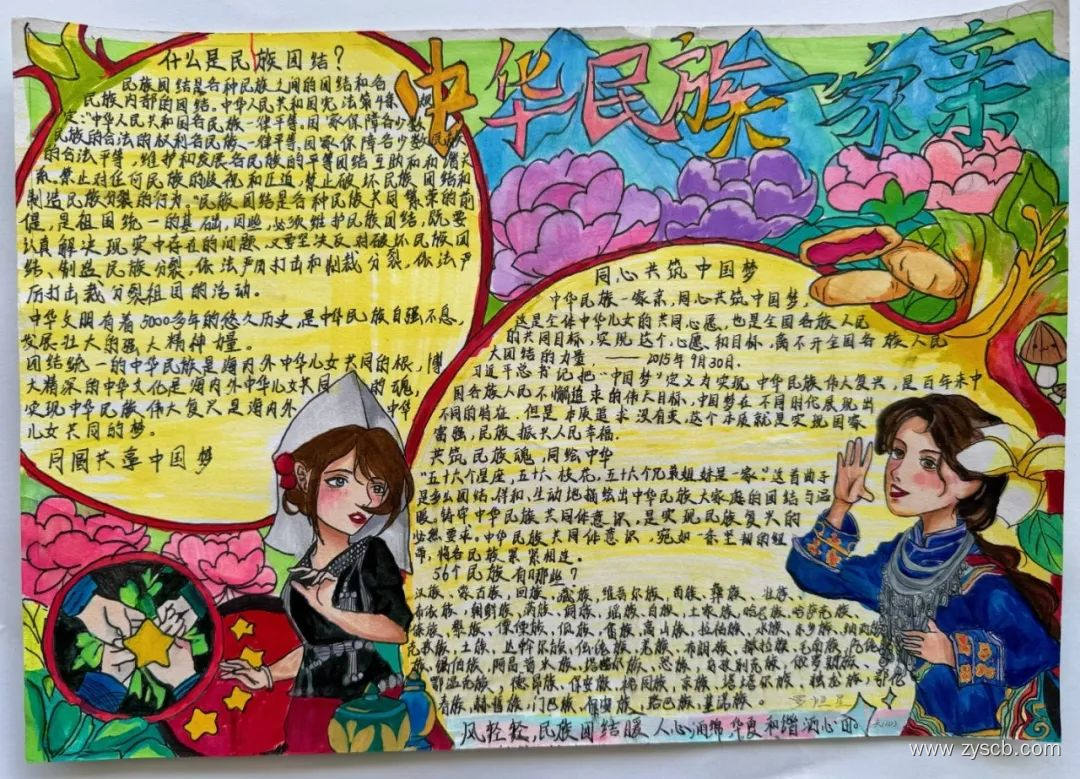 中华民族一家亲
什么是民族团结?
民族团结是各种民族之间的团结和各
民族内部的团结。中华人民共和国宪法第4条规
定:"中华人民共和国各民族一律平等。国家保障各少数
民族的合法的权利各民族一律平等。国家保障各少数民族
的合法平等,维护和发展各民族的平等团结互助和和谐关
系,禁止对任何民族的歧视和压迫,禁止破坏民族团结和
制造民族分裂的行为。"民族团结是各种民族共同繁荣的前
提,是祖国统一的基础,因此,必须维护民族团结,既要
认真解决现实中存在的问题,又要坚决反对破坏民族团
结、制造民族分裂,依法严厉打击和制裁分裂,依法严
厉打击裁分裂祖国的活动。
中华文明有着5000多年的悠久历史,是中华民族自强不息,
发展壮大的强大精神力量。
团结统一的中华民族是海内外中华儿女共同的根,博
大精深的中华文化是海内外中华儿女共同的魂,
实现中华民族伟大复兴是海内外中华
儿女共同的梦。
同圆共享中国梦
同心共筑中国梦
中华民族一家亲,同心共筑中国梦,
这是全体中华儿女的共同心愿,也是全国各族人民
的共同目标,实现这个心愿和目标,离不开全国各族人民
大团结的力量 ——2015年9月30日.
习近平总书记把"中国梦"定义为实现中华民族伟大复兴,是百年来中
国各族人民不懈追求的伟大目标、中国梦在不同时代展现出
不同的特征.但是本质追求没有变,这个本质就是实现国家
富强,民族振兴人民幸福.
共筑民族魂,同绘中华
"五十六个星座,五十六枝花,五十六个兄弟姐妹是一家。"这首曲子
是多么团结,
生动地描绘出中华民族大家庭的团结与温
暖,铸牢中华民族共同体意识,是实现民族复兴的
必然要求,中华民族共同体意识,宛如一条坚韧的纽
带,将各民族紧紧相连。
56个民族有哪些?
汉族、蒙古族、回族、藏族、维吾尔族、苗族、彝族、壮族、
布依族、朝鲜族、满族、侗族、瑶族、白族、土家族、哈尼族、哈萨克族、
傣族、黎族、傈僳族、佤族、畲族、高山族、拉祜族、水族、东乡族、纳西族
土族、达斡尔族、仫佬族、羌族、布朗族、撒拉族、毛南族、
锡伯族、阿昌普米族、塔吉克族、怒族、乌孜别克族、俄罗斯族、
鄂温克族、德昂族、保安族、裕固族、京族、塔塔尔族、独龙族、鄂伦
春族、赫哲族、门巴族、珞巴族、基诺族。
风轻轻,民族团结暖人心
www.zyscb.com